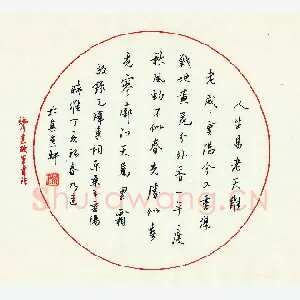 人生易老天難
老歲々重陽今又重陽
戰地黃花分外香一年一度
秋風勁不似春光勝似春
光寥廓江天萬里霜
敬錄毛澤東詞采桑子重陽
時維丁亥
於真
Shufawang.cn